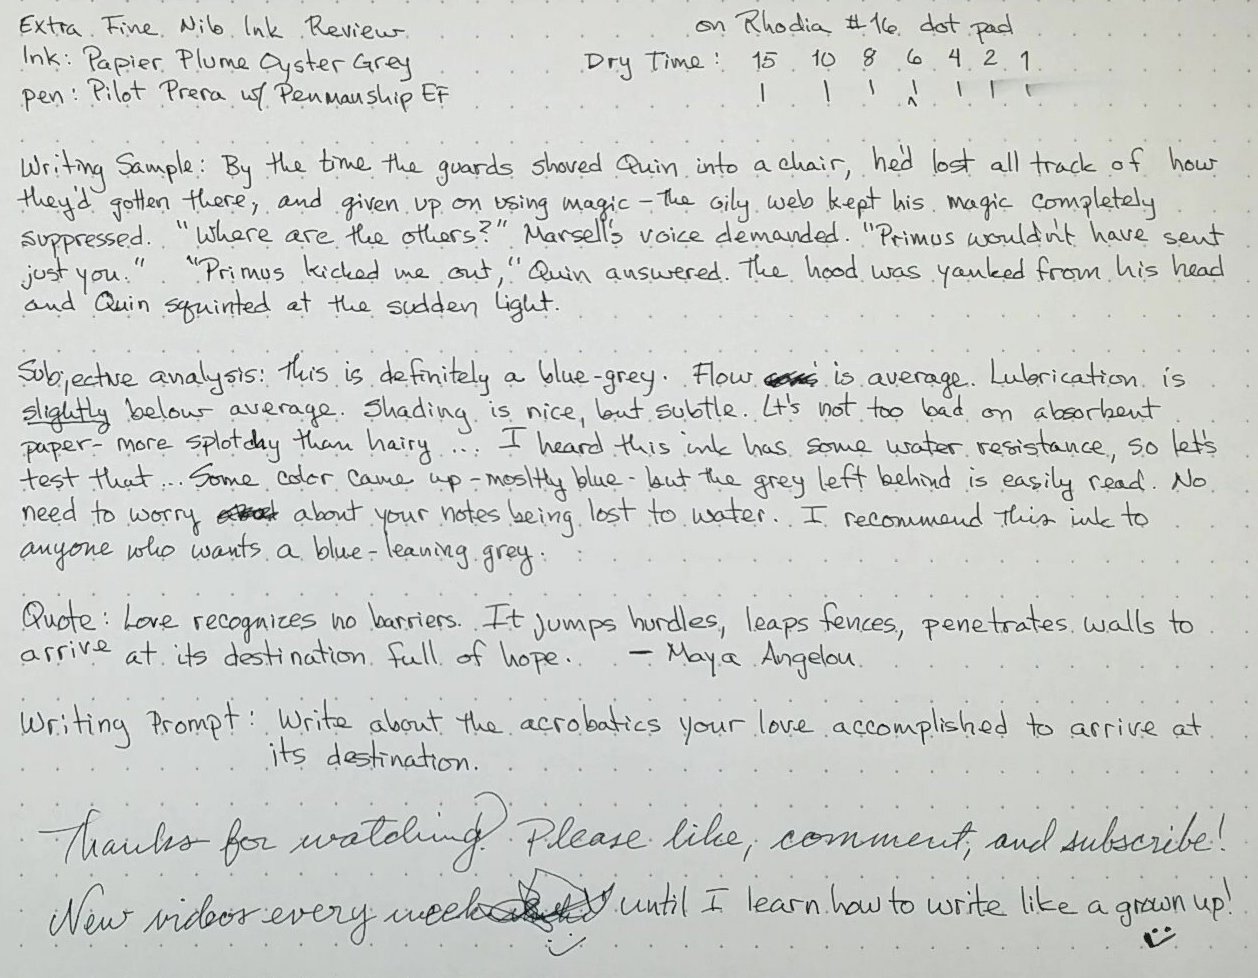 Extra Fine Nib Ink Review on Rhodia #16 dot pad
Ink: Papier Plume Oyster Grey Dry Time: 15 10 8 6 4 2 1
pen: Pilot Prera w/ Penmanship EF
Writing Sample: By the time the guards shoved Quin into a chair, he'd lost all track of how
they'd gotten there, and given up on using magic - the oily web kept his magic completely
suppressed. "Where are the others?" Marsell's voice demanded. "Primus wouldn't have sent
just you." "Primus kicked me out," Quin answered. The hood was yanked from his head
and Quin squinted at the sudden light.
Subjective analysis: This is definitely a blue-grey. Flow is average. Lubrication is
slightly below average. Shading is nice, but subtle. It's not too bad on absorbent
paper - more splotchy than hairy ... I heard this ink has some water resistance, so let's
test that ... Some color came up - mosltly blue - but the grey left behind is easily read. No
need to worry about your notes being lost to water. I recommend this ink to
anyone who wants a blue-leaning grey.
Quote: Love recognizes no barriers. It jumps hurdles, leaps fences, penetrates walls to
arrive at its destination full of hope. - Maya Angelou
Writing Prompt: Write about the acrobatics your love accomplished to arrive at
its destination.
Thanks for watching? Please like, comment, and subscribe!
New videos every week until I learn how to write like a grown up!